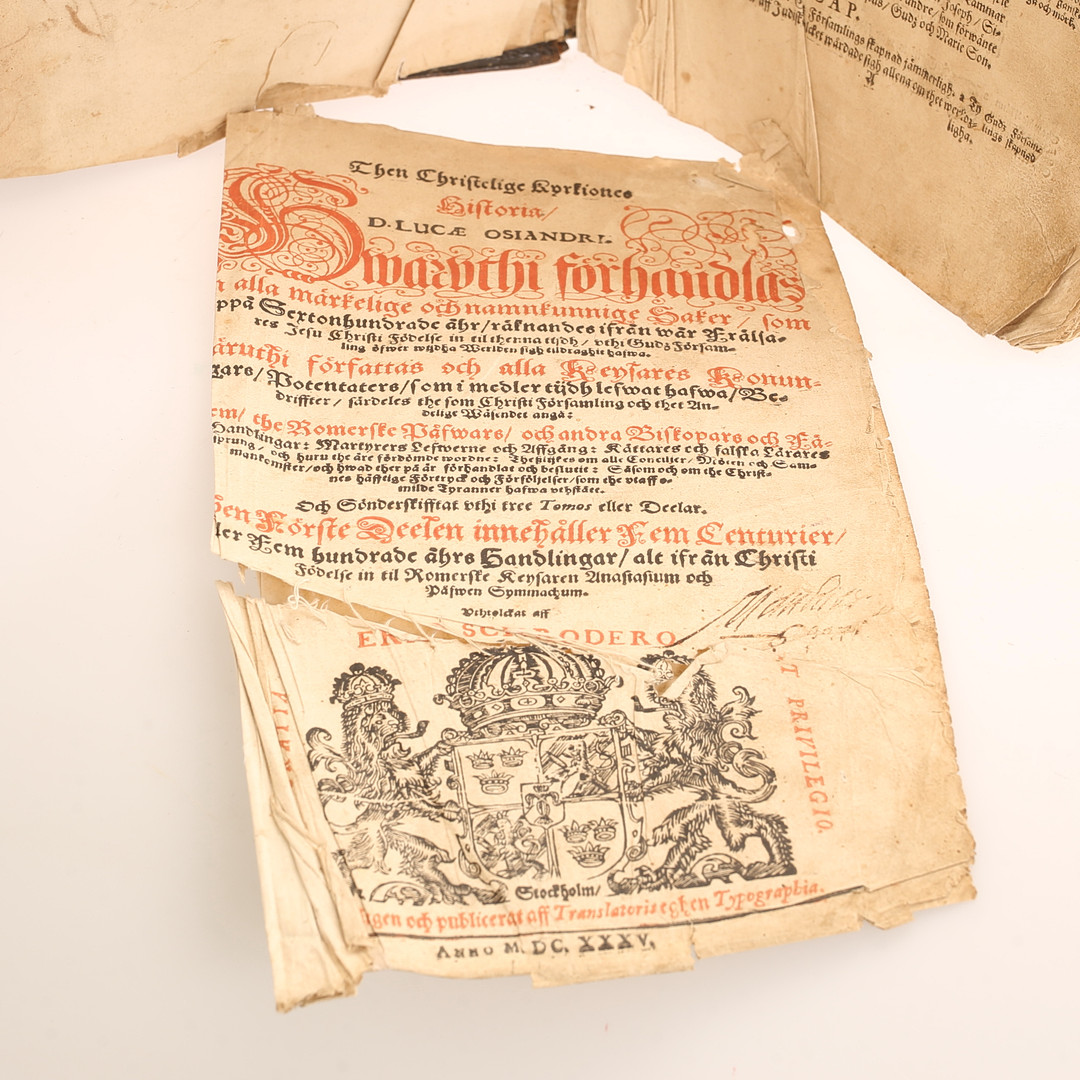 Then Christelige Kyrkiones
Historia/
D. LUCÆ OSIANDRI.
Hwaruthi förhandlas
alla märkelige och namnkunnige Saker/ som
ppå Sextonhundrade åhr/ räknandes ifrån wår Frälsa-
res Jesu Christi Födelse in til thenna tijdh/ vthi Gudz Försam-
ling öfwer wijdha Werlden sigh tildraghit hafwa.
äruthi författas och alla Keysares Konun-
gars/ Potentaters/ som i medler tijdh lefwat hafwa/ Be-
driffter/ särdeles the som Christi Församling och thet An-
delige Wäsendet angå:
em/ the Romerske Påfwars/ och andra Biskopars och Fä-
Handlingar: Martyrers Lefwerne och Affgång: Kättares och falska Lärares
sprung/ och huru the äre fördömde wordne: Thesslijkes om alle Concilier/ Möten och Sam-
mankomster/ och hwad ther på är förhandlat och beslutit: Såsom och om the Christ-
nes häfftige Förtryck och Förföljelser/ som the vtaff o-
milde Tyranner hafwa vthstått.
Och Sönderskifftat vthi tree Tomos eller Deelar.
Den Förste Deelen innehåller Fem Centurier/
ler Fem hundrade åhrs Handlingar/ alt ifrån Christi
Födelse in til Romerske Keysaren Anastasium och
Påfwen Symmachum.
Vthtolckat aff
ER SCHRODERO
T PRIVILEGIO.
Stockholm/
gen och publicerat aff Translatoris eghen Typographia.
ANNO M. DC. XXXV.
CAP.
Joseph/ Si-
/ Gudz och Marie Son.
Församlings skapnad jämmerligh.
ligha.